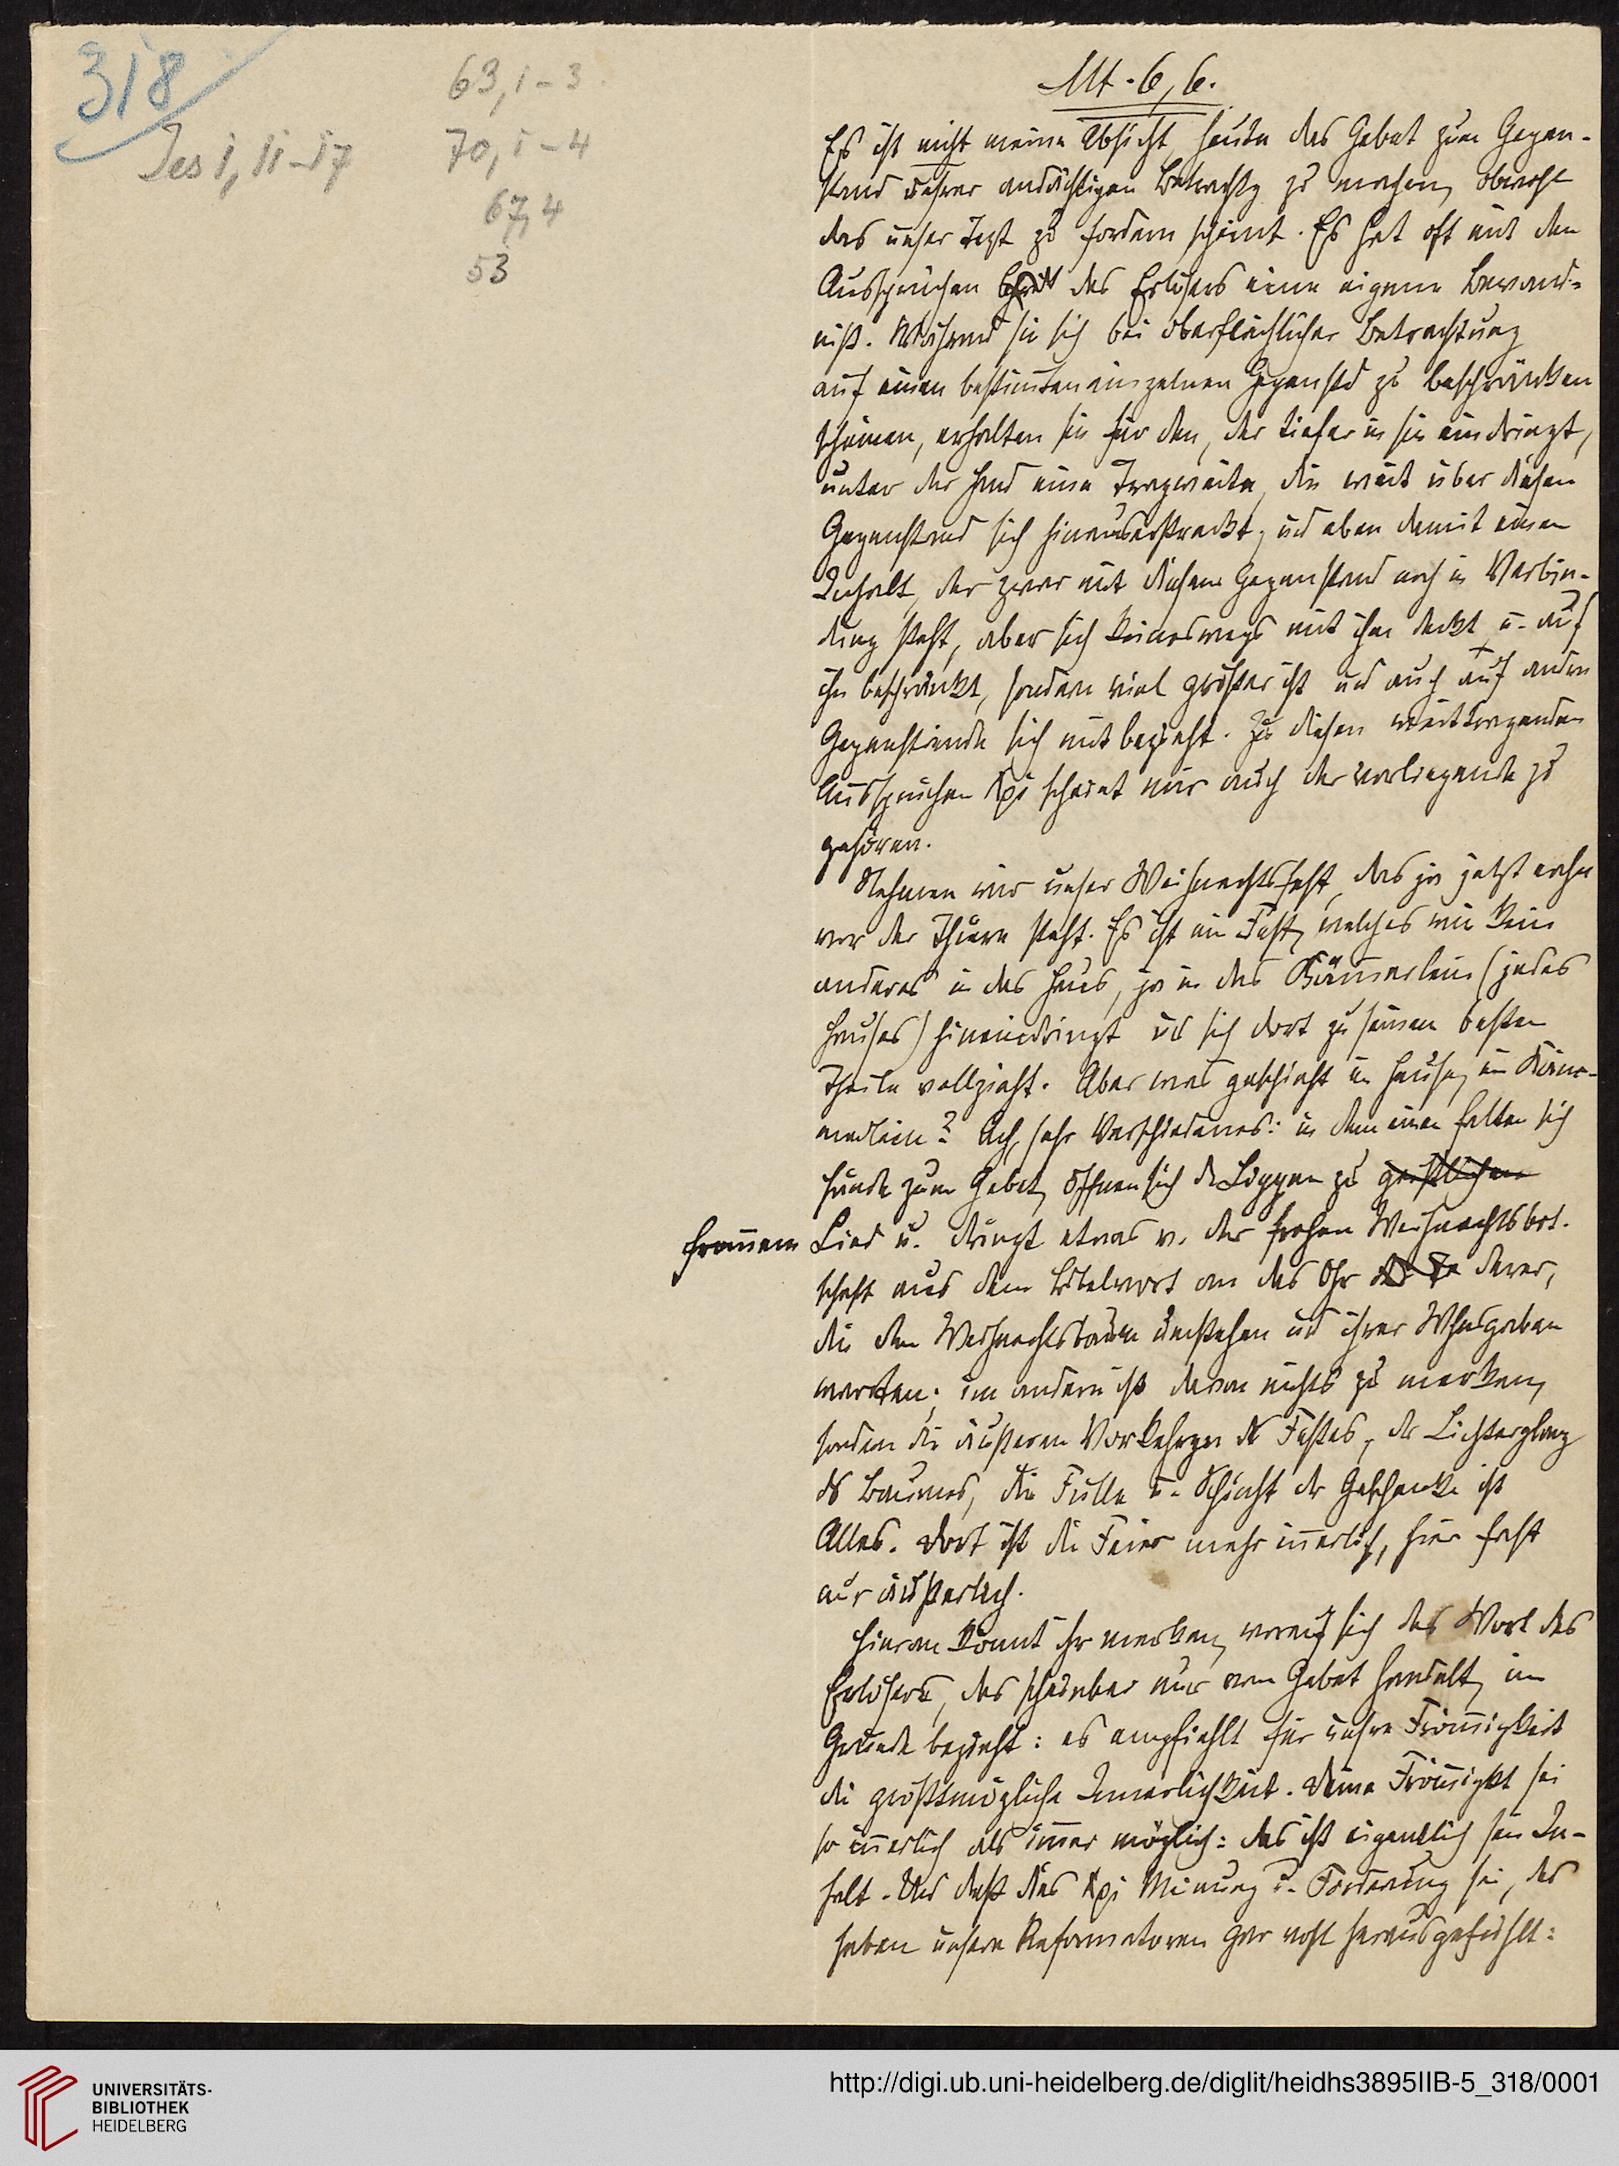 318
Jes 1, 11-17
63, 1-3
70, 1-4
67, 4
53
Mt. 6, 6.
Es ist nicht meine Absicht, heute das Gebet zum Gegen-
stand unsrer andächtigen Betrachtg zu machen, obwohl
das unser Text zu fordern scheint. Es hat oft mit den
Aussprüchen des Erlösers eine eigene Bewand-
niß. Während sie sich bei oberflächlicher Betrachtung
auf einen bestimten einzelnen Gegenstd zu beschränken
scheinen, erhalten sie für den, der tiefer in sie eindringt,
unter der Hand eine Tragweite, die weit über diesen
Gegenstand sich hinauserstreckt, und eben damit einen
Inhalt, der zwar mit diesem Gegenstand noch in Verbin-
dung steht, aber sich keineswegs mit ihm deckt u. auf
ihn beschränkt, sondern viel größer ist und auch auf andre
Gegenstände sich mit bezieht. Zu diesen weittragenden
Aussprüchen Xpi scheint mir auch der vorliegende zu
gehören.
Nehmen wir unser Weihnachtsfest, das ja jetzt nahe
vor der Thüre steht. Es ist ein Fest, welches wie kein
anderes in das Haus, ja in das Kämerlein (jedes
Hauses) hineindringt und sich dort zu seinem besten
Theile vollzieht. Aber was geschieht im Hause, im Käm-
merlein? Ach, sehr Verschiedenes: in dem einen falten sich
Hände zum Gebet, öffnen sich die Lippen zu geistlichem
frommem Lied u. dringt etwas v. der frohen Weihnachtsbot-
schaft aus dem Bibelwort an das Ohr derer,
die den Weihnachtsbaum umstehen und ihrer Whnsgaben
warten; im andern ist davon nichts zu merken,
sondern die äußeren Vorkehrgen des Festes, der Lichterglanz
ds Baumes, die Fülle u. der Geschenke ist
Alles. Dort ist die Feier mehr innerlich, hier fast
nur äußerlich.
Hieran könnt ihr merken, worauf sich das Wort des
Erlösers, das scheinbar nur vom Gebet handelt, im
Grunde bezieht: es empfiehlt für unsre Frömigkeit
die größtmögliche Innerlichkeit. Deine Frömigkt sei
so innerlich als immer möglich: das ist eigentlich sein In-
halt. Und daß dies Xpi Meinung u. Forderung sei, das
haben unsere Reformatoren gar wohl herausgefühlt:
UNIVERSITÄTS-
BIBLIOTHEK
HEIDELBERG
http://digi.ub.uni-heidelberg.de/diglit/heidhs3895IIB-5_318/0001